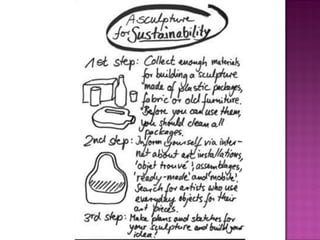 A sculpture
for Sustainability
1st step: Collect enough materials
for building a sculpture
made of plastic packages,
fabric or old furniture.
Before you can use them,
you should clean all
packages.
2nd step: Inform yourself via inter-
net about art installations,
'objet trouvé', assemblages,
'ready-made' and 'mobile'.
Search for artists who use
everyday objects for their
art pieces.
3rd step: Make plans and sketches for
your sculpture and build your
idea!